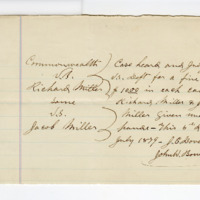 Commonwealth
vs.
Richard Miller
same
vs.
Jacob Miller
Case heard and Jud
vs. Deft for a fine
in each case
Richard Miller & J
Miller given
This 5th
July 1879 - J.C.
John W.